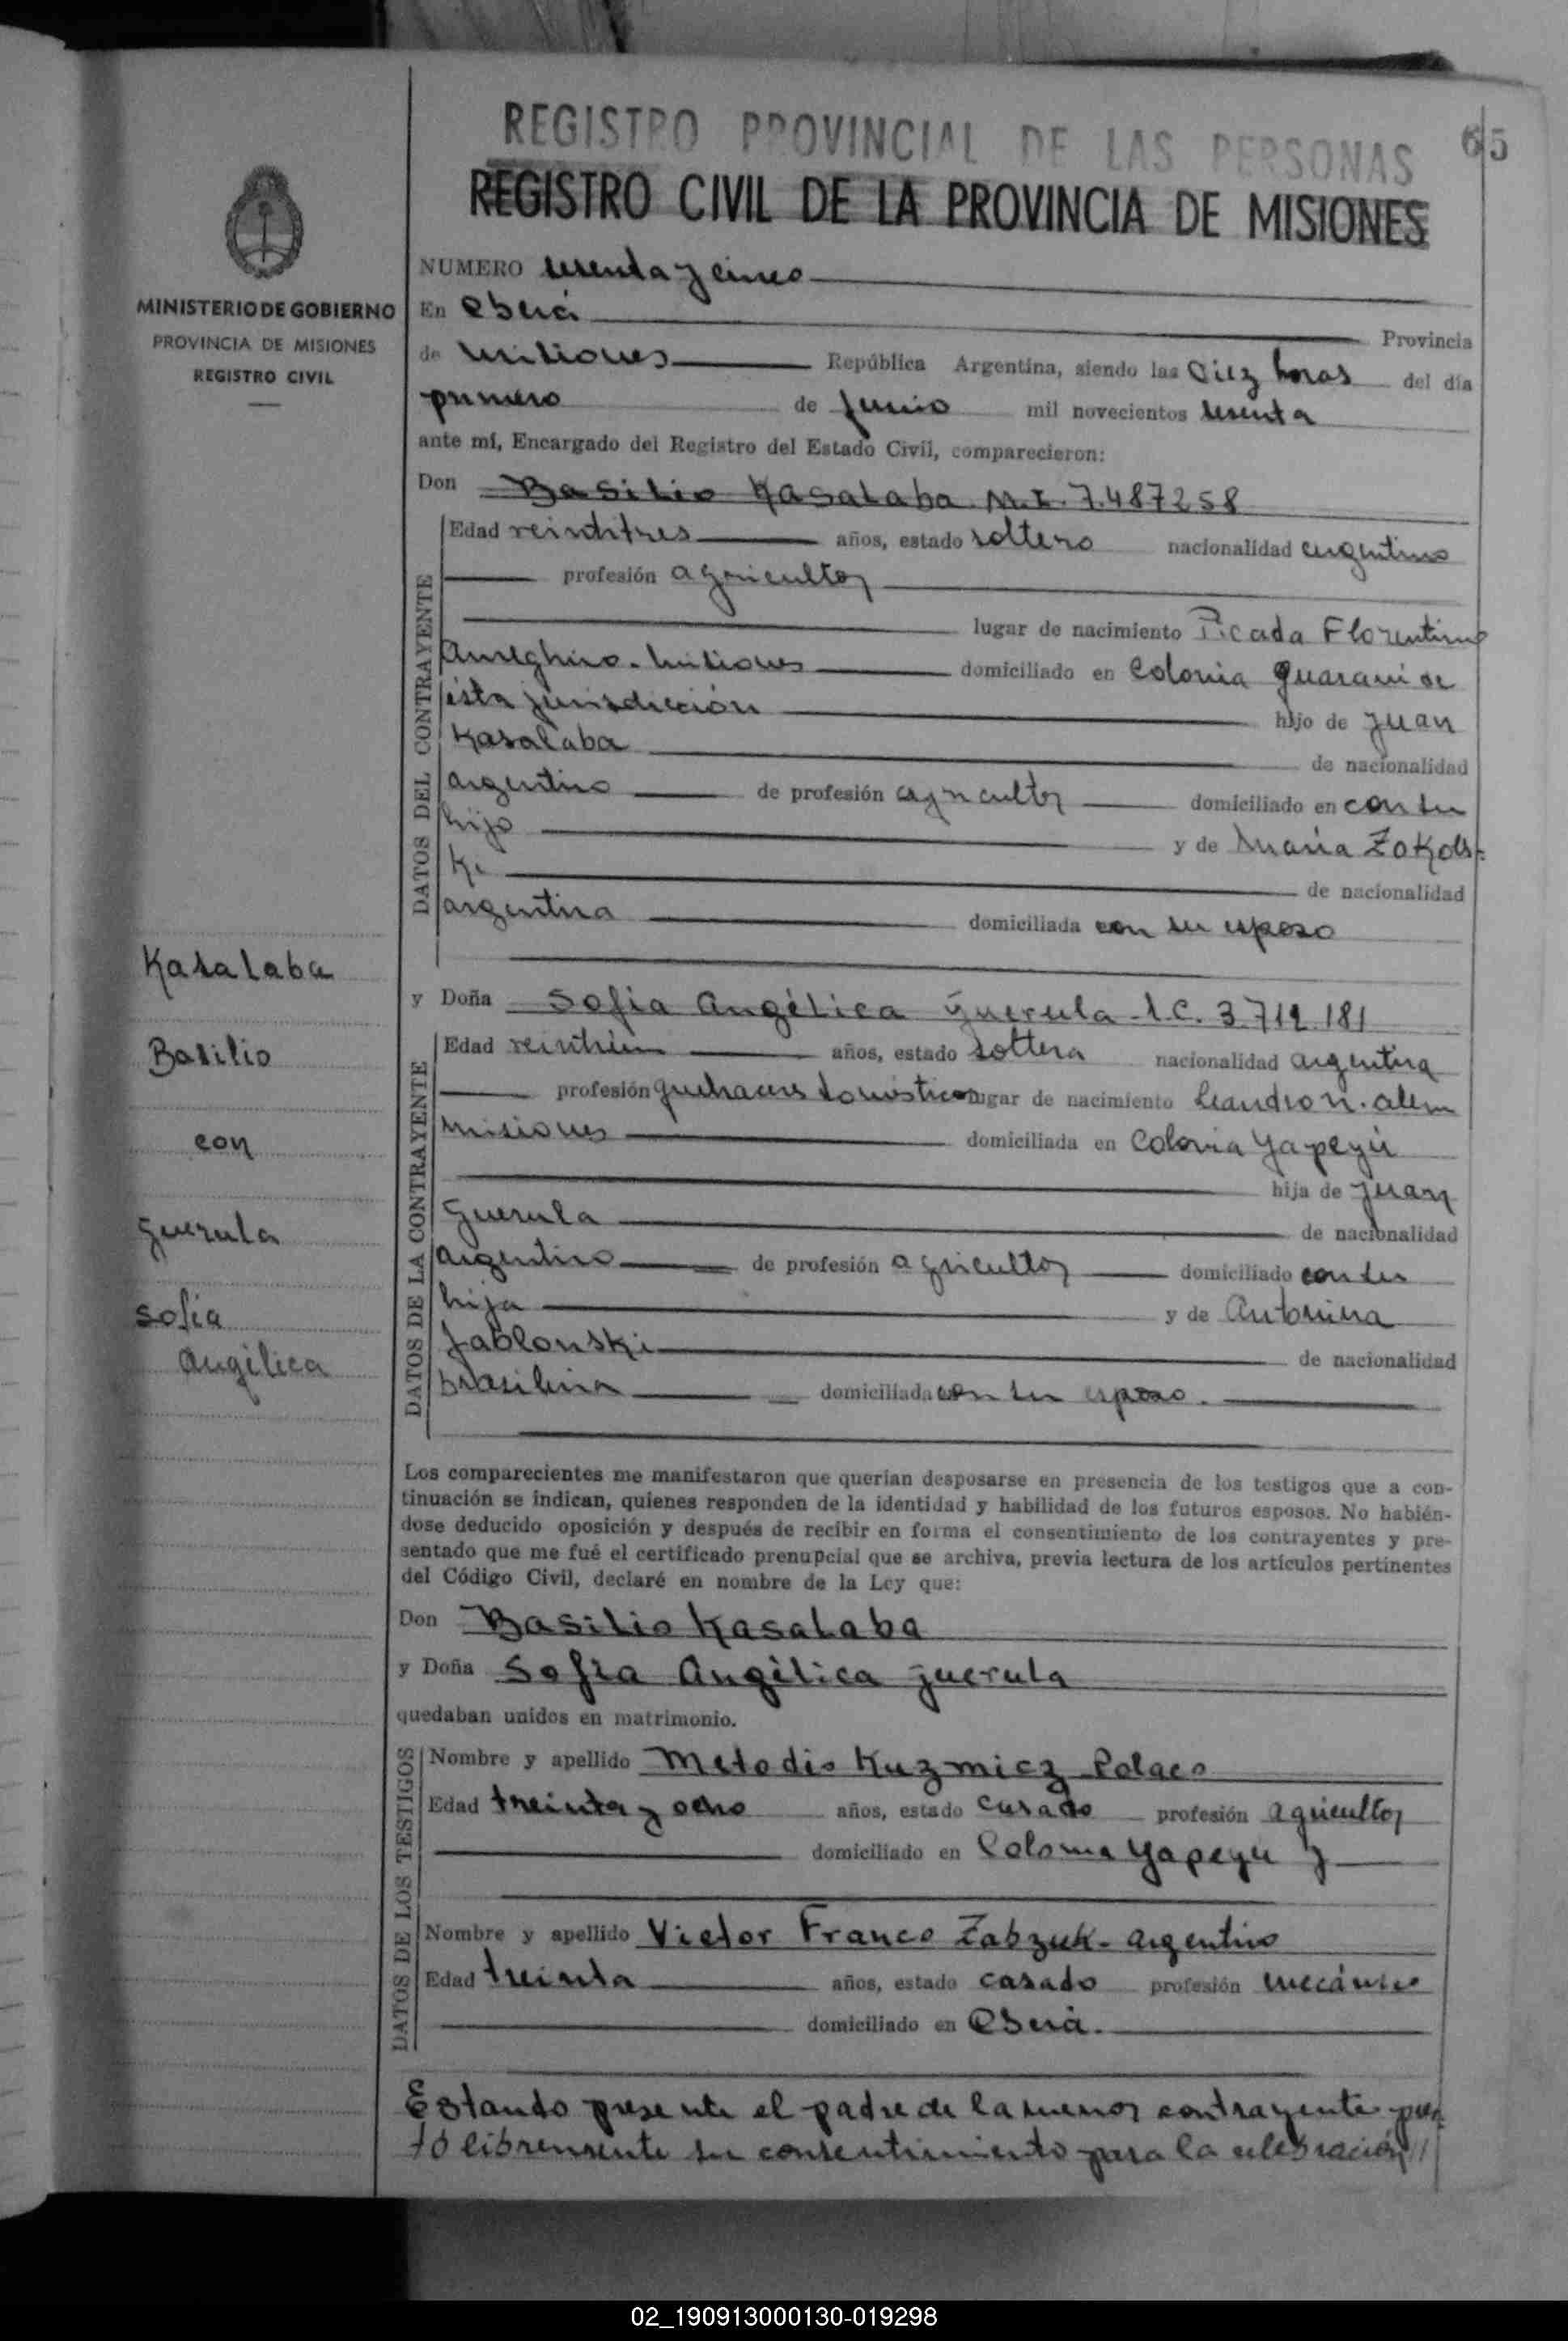 REGISTRO PROVINCIAL DE LAS PERSONAS
65
REGISTRO CIVIL DE LA PROVINCIA DE MISIONES
MINISTERIO DE GOBIERNO
PROVINCIA DE MISIONES
REGISTRO CIVIL
NUMERO sesenta y cinco
En Oberá Provincia
de Misiones República Argentina, siendo las diez horas del día
primero de Junio mil novecientos sesenta
ante mí, Encargado del Registro del Estado Civil, comparecieron:
Don Basilio Kasalaba M.I. 7.487258
DATOS DEL CONTRAYENTE
Edad veintitres años, estado soltero nacionalidad argentino
profesión agricultor
lugar de nacimiento Picada Florentino
Ameghino - Misiones domiciliado en Colonia Guarani de
ésta jurisdicción hijo de Juan
Kasalaba de nacionalidad
argentino de profesión agricultor domiciliado en con su
hijo y de Maria Zokols-
ki de nacionalidad
argentina domiciliada con su esposo
Kasalaba
Basilio
con
Guerula
Sofia
Angélica
y Doña Sofia Angélica Guerula - L.C. 3.712.181
DATOS DE LA CONTRAYENTE
Edad años, estado soltera nacionalidad argentina
profesión quehaceres domésticos lugar de nacimiento Leandro N. Alem
Misiones domiciliada en Colonia Yapeyú
hija de Juan
Guerula de nacionalidad
argentino de profesión agricultor domiciliado con su
hija y de Antonina
Jablonski de nacionalidad
brasilena domiciliada con su esposo.
Los comparecientes me manifestaron que querían desposarse en presencia de los testigos que a con-
tinuación se indican, quienes responden de la identidad y habilidad de los futuros esposos. No habién-
dose deducido oposición y después de recibir en forma el consentimiento de los contrayentes y pre-
sentado que me fué el certificado prenupcial que se archiva, previa lectura de los artículos pertinentes
del Código Civil, declaré en nombre de la Ley que:
Don Basilio Kasalaba
y Doña Sofia Angélica Guerula
quedaban unidos en matrimonio.
DATOS DE LOS TESTIGOS
Nombre y apellido Metodio Kuzmicz Polaco
Edad treinta y ocho años, estado casado profesión agricultor
domiciliado en Colonia Yapeyu y
Nombre y apellido Victor Franco Zabzuk - argentino
Edad treinta años, estado casado profesión mecánico
domiciliado en Oberá.
Estando presente el padre de la menor contrayente pres
tó libremente su consentimiento para la celebración//
02_190913000130-019298